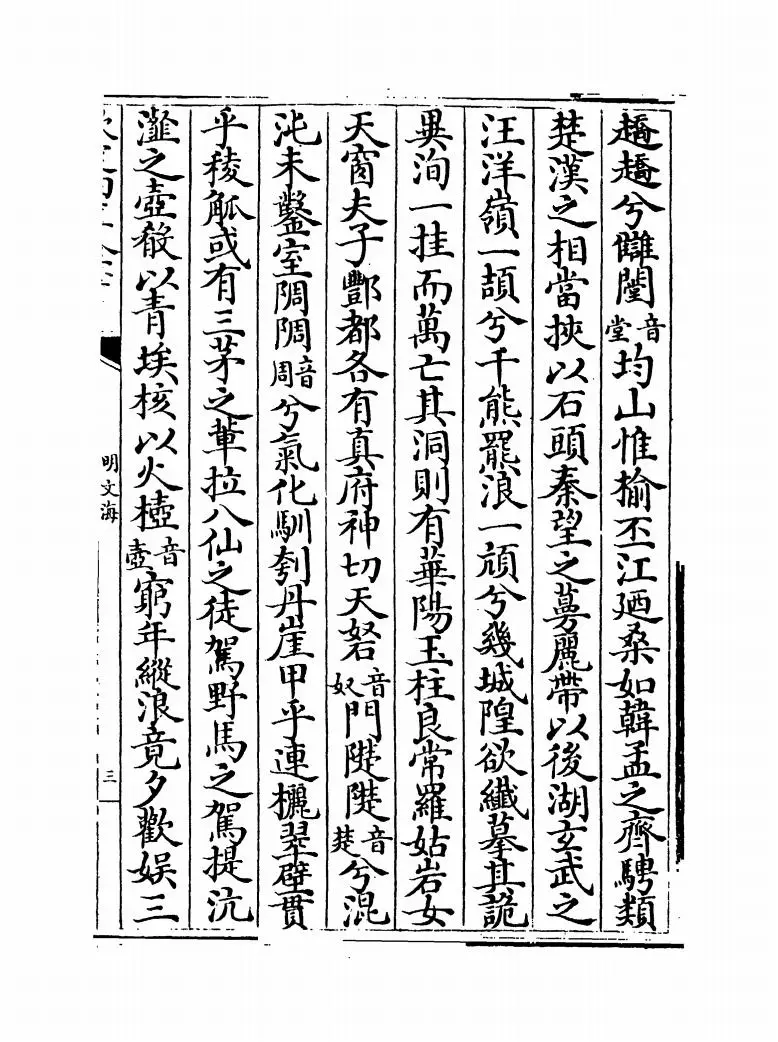 趫趫兮讎闉音堂均山惟楡丕江廼桑如韓孟之齊騁類
楚漢之相當挾以石頭秦望之蔓麗帶以後湖玄武之
汪洋嶺一頡兮千熊羆浪一頏兮幾城隍欲纖摹其詭
異洵一挂而萬亡其洞則有華陽玉柱良常羅姑岩女
天窗夫子酆都各有真府神切天砮音奴門㻇㻇音楚兮混
沌未鑿室䧓䧓音周兮氣化馴刳丹崖甲乎連欐翠壁貫
乎稜觚或有三茅之輩拉八仙之徒駕野馬之駕提沆
瀣之壺殽以青埃核以火樝音壺窮年縱浪竟夕歡娱三
明文海
三